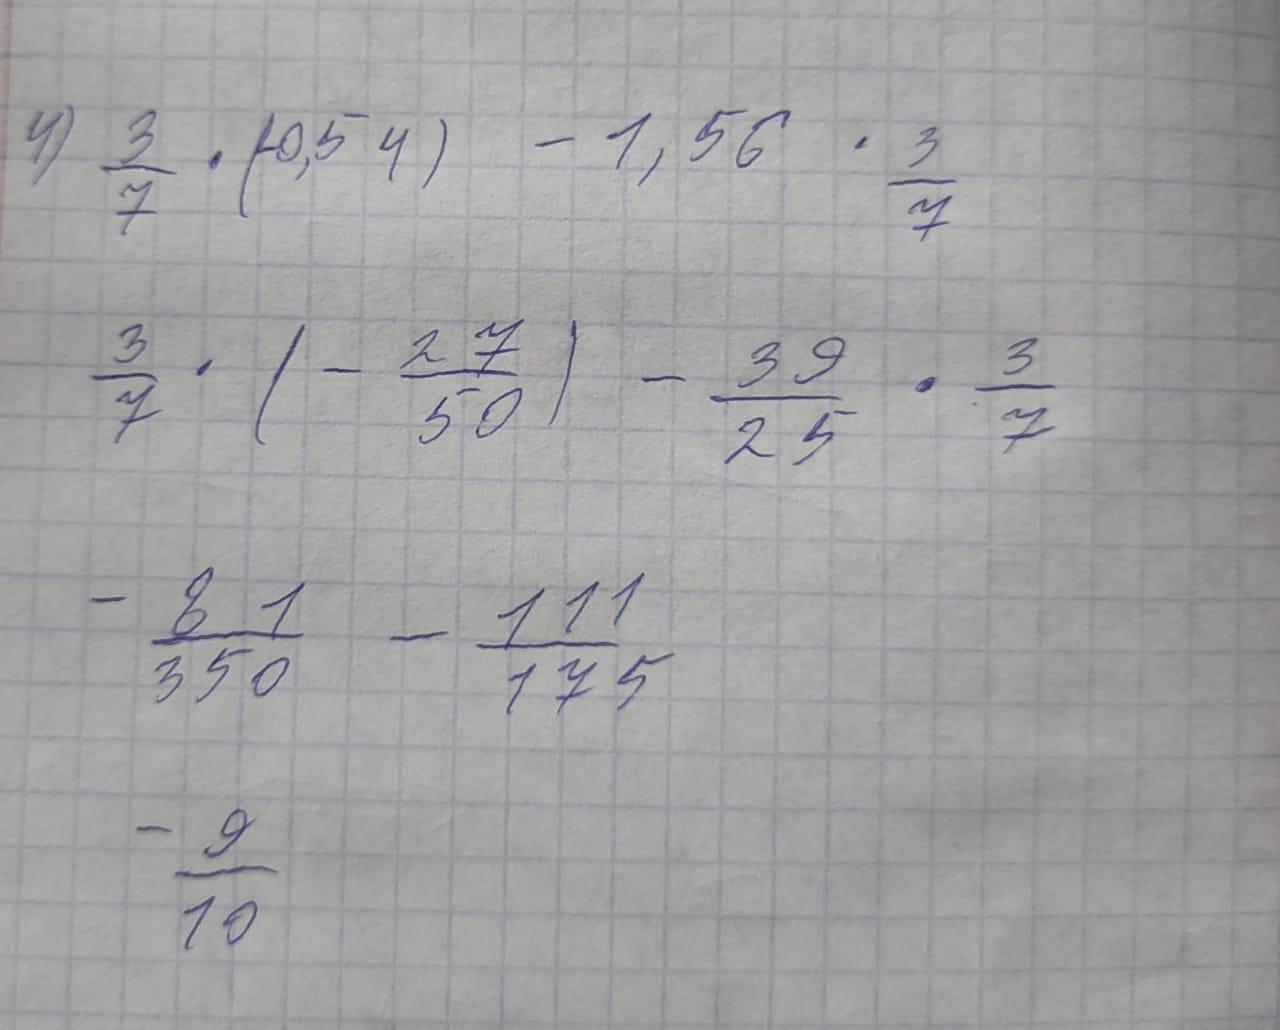 4) 3/7 · (-0,54) - 1,56 · 3/7
3/7 · (- 27/50) - 39/25 · 3/7
- 81/350 - 111/175
- 9/10